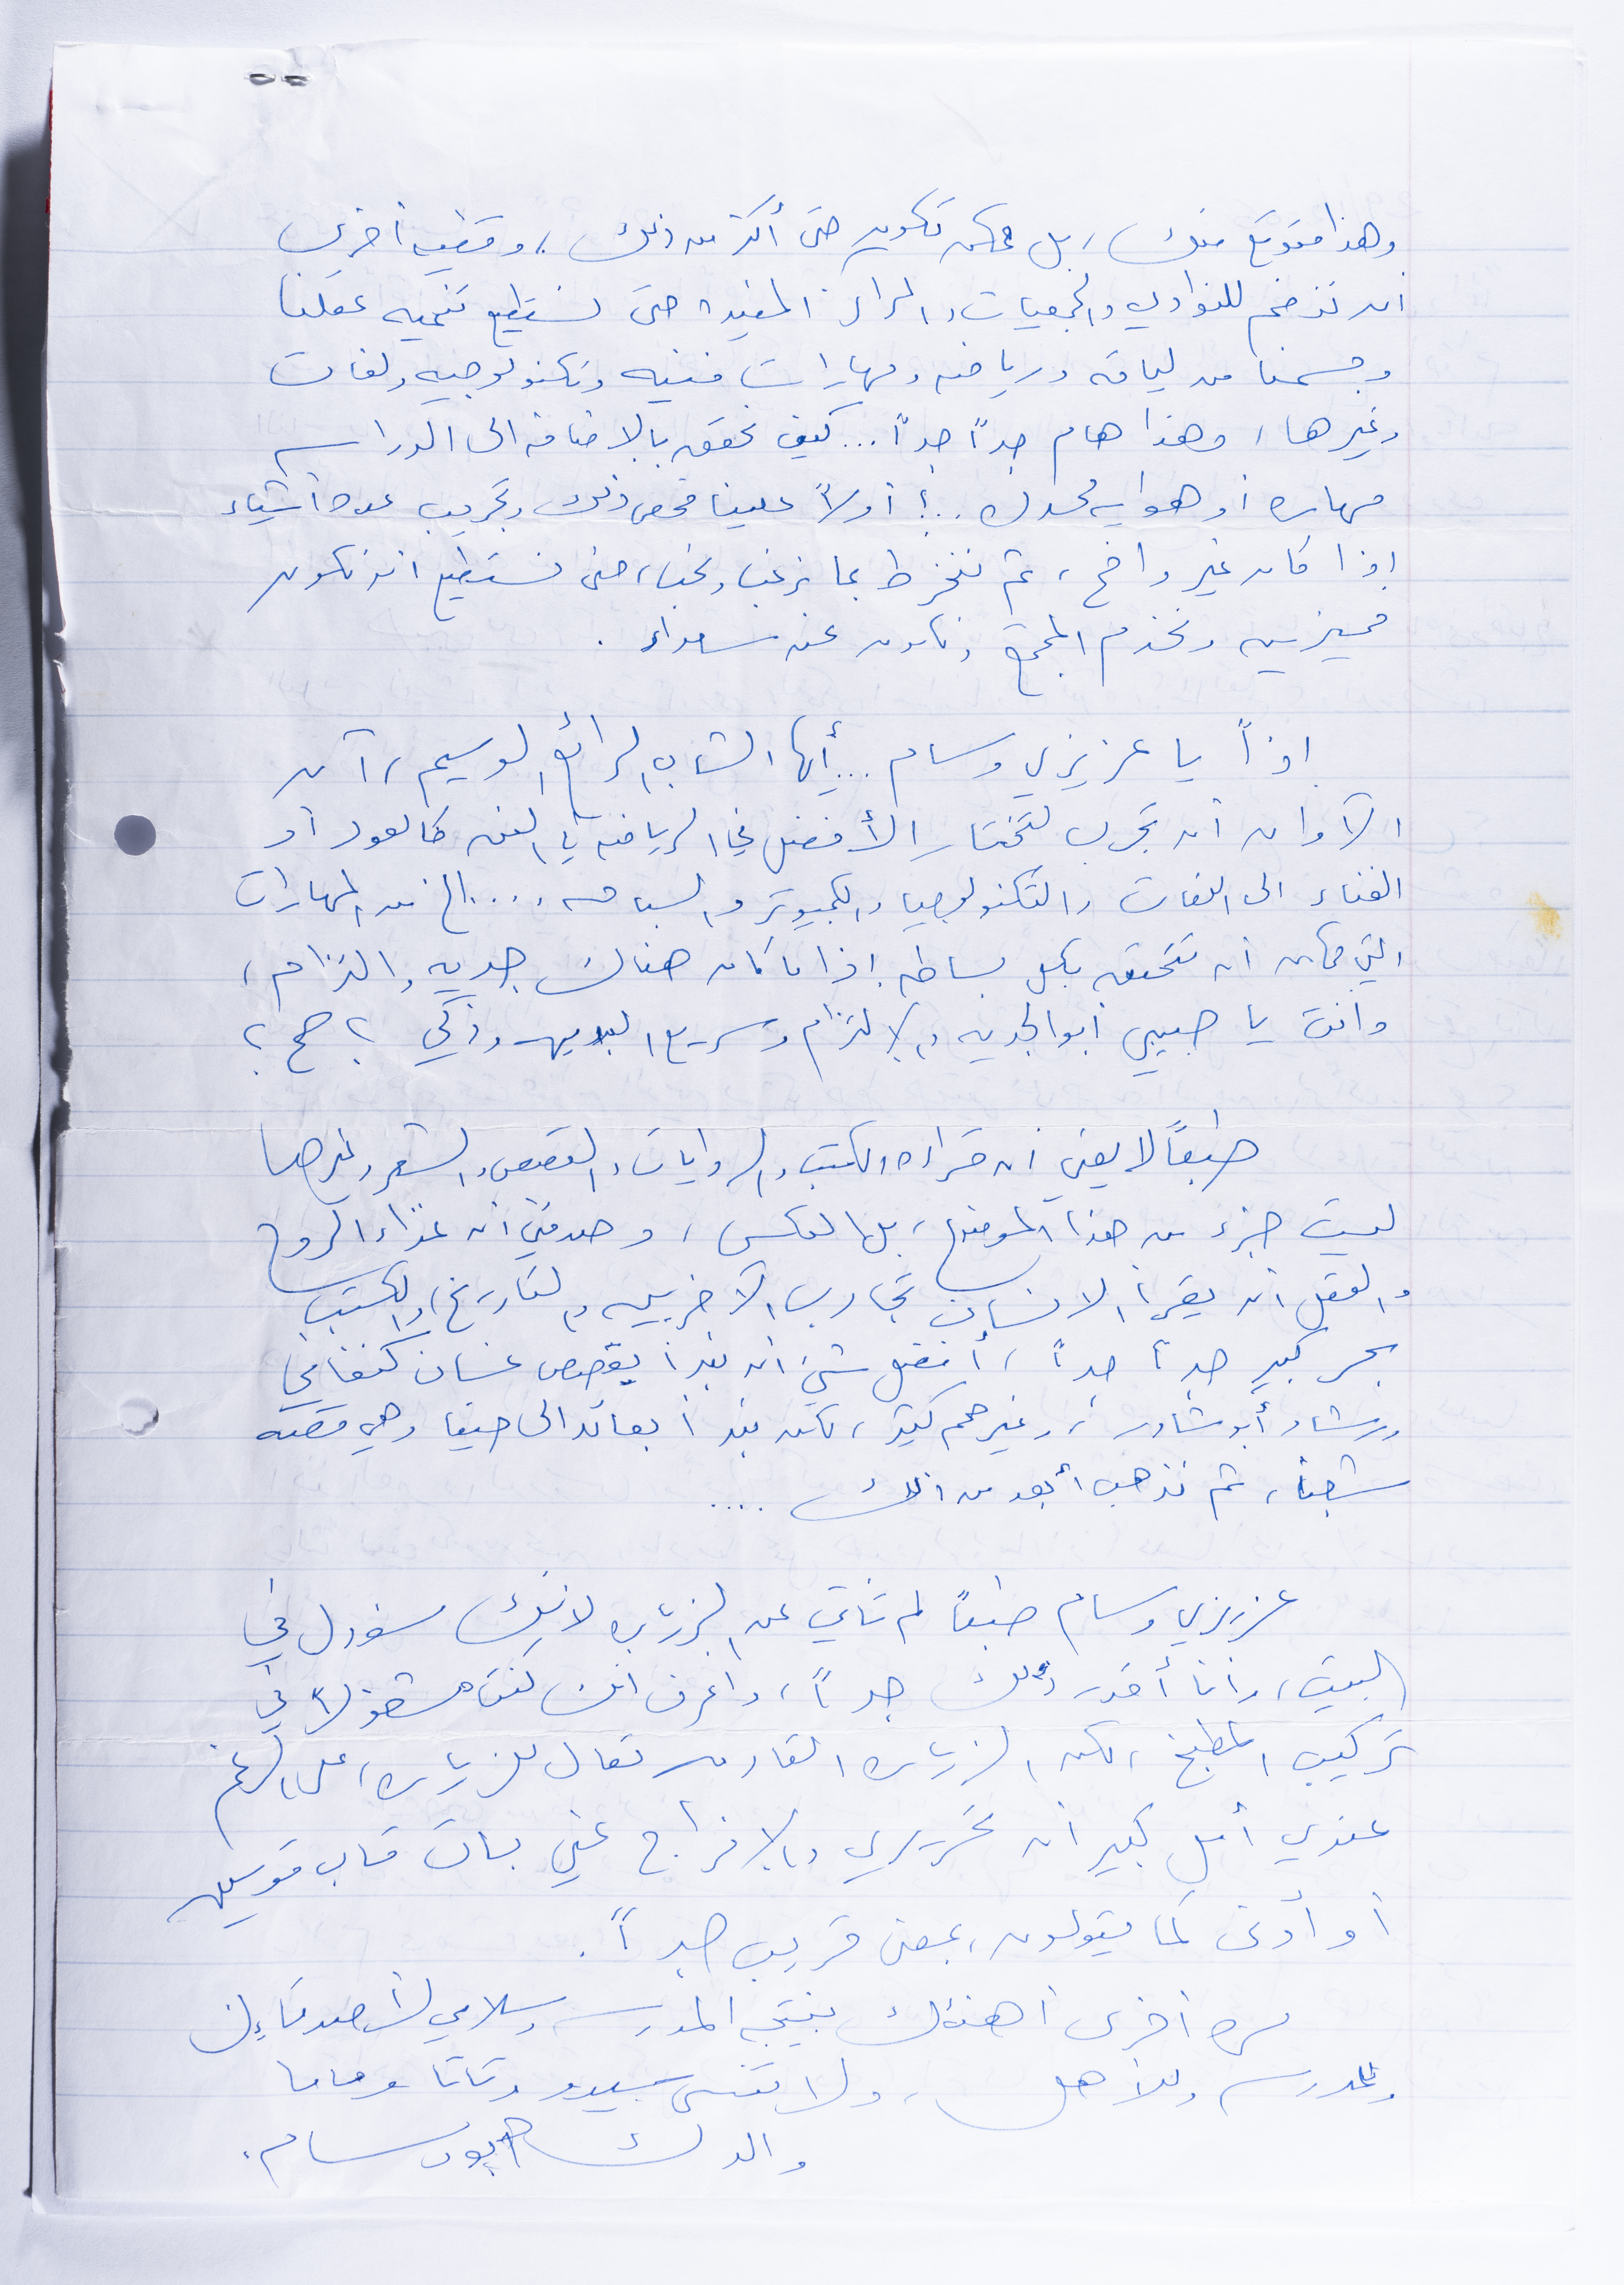 وهذا متوقع منك، بل ممكن تكون حتى أكثر من ذلك، وقضيه أخرى
ان ننضم للنوادي والجمعيات والمراكز المفيدة حتى نستطيع تنميه عقلنا
وجسمنا من لياقه ورياضه ومهارات فنيه وتكنولوجيه ولغات
وغيرها، وهذا هام جداً جداً... كيف نحقق بالاضافه الى الدراسه
مهاره أو هوايه محدده..؟ أولاً علينا فحص ذلك وتجريب عدة أشياء
اذا كان غير واضح، ثم ننخرط بما نرغب ونحب، حتى نستطيع ان نكون
مميزين ونخدم المجتمع ونكون نحن سعداء.
اذاً يا عزيزي وسام... أيها الشاب الرائع الوسيم، آن
الآوان أن تجرب لتختار الأفضل في الرياضه في الفن كالعود أو
الغناء الى اللغات والتكنولوجيا والكمبيوتر والسباحه....الخ من المهارات
التي ممكن أن تتحقق بكل بساطه اذا ما كان هناك جديه والتزام،
وانت يا حبيبي أبو الجديه والالتزام وسريع البديهه وذكي ؟ صح ؟
طبعاً لا يعني ان قراءة الكتب والروايات والقصص والشعر وغيرها
ليست جزء من هذا الموضوع، بل العكس، وصدقني أن غذاء الروح
والعقل ان يقرأ الانسان تجارب الآخرين والتاريخ، والكتب
بحر كبير جداً جداً، أفضل شيء ان نبدأ بقصص غسان كنفاني
ورشاد أبو شاور، وغيرهم كثير، لكن نبدأ بعائد الى حيفا وهي قصة
شعبنا، ثم نذهب أبعد من ذلك ....
عزيزي وسام طبعاً لم تأتي عن الزياره لانك مسؤول في
البيت، وانا أقدر ذلك جداً، واعرف انك كنت مشغولاً في
تركيب المطبخ، لكن الزياره القادمه تعال للزياره، على الرغم
عندي أمل كبير أن تحريري والافراج عني بات قاب قوسين
أو أدنى كما يقولون، بمعنى قريب جداً.
مره أخرى أهنئك بنتيجه المدرسه وسلامي لأصدقاءك
وللمدرسه وللأهل، ولا تنسى سيدو وتاتا وماما
والدك ابو وسام.